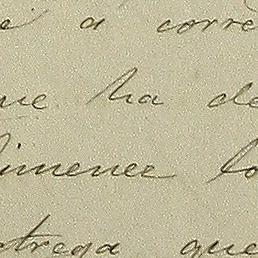 e a corre
que ha de
limenee lo
trega que